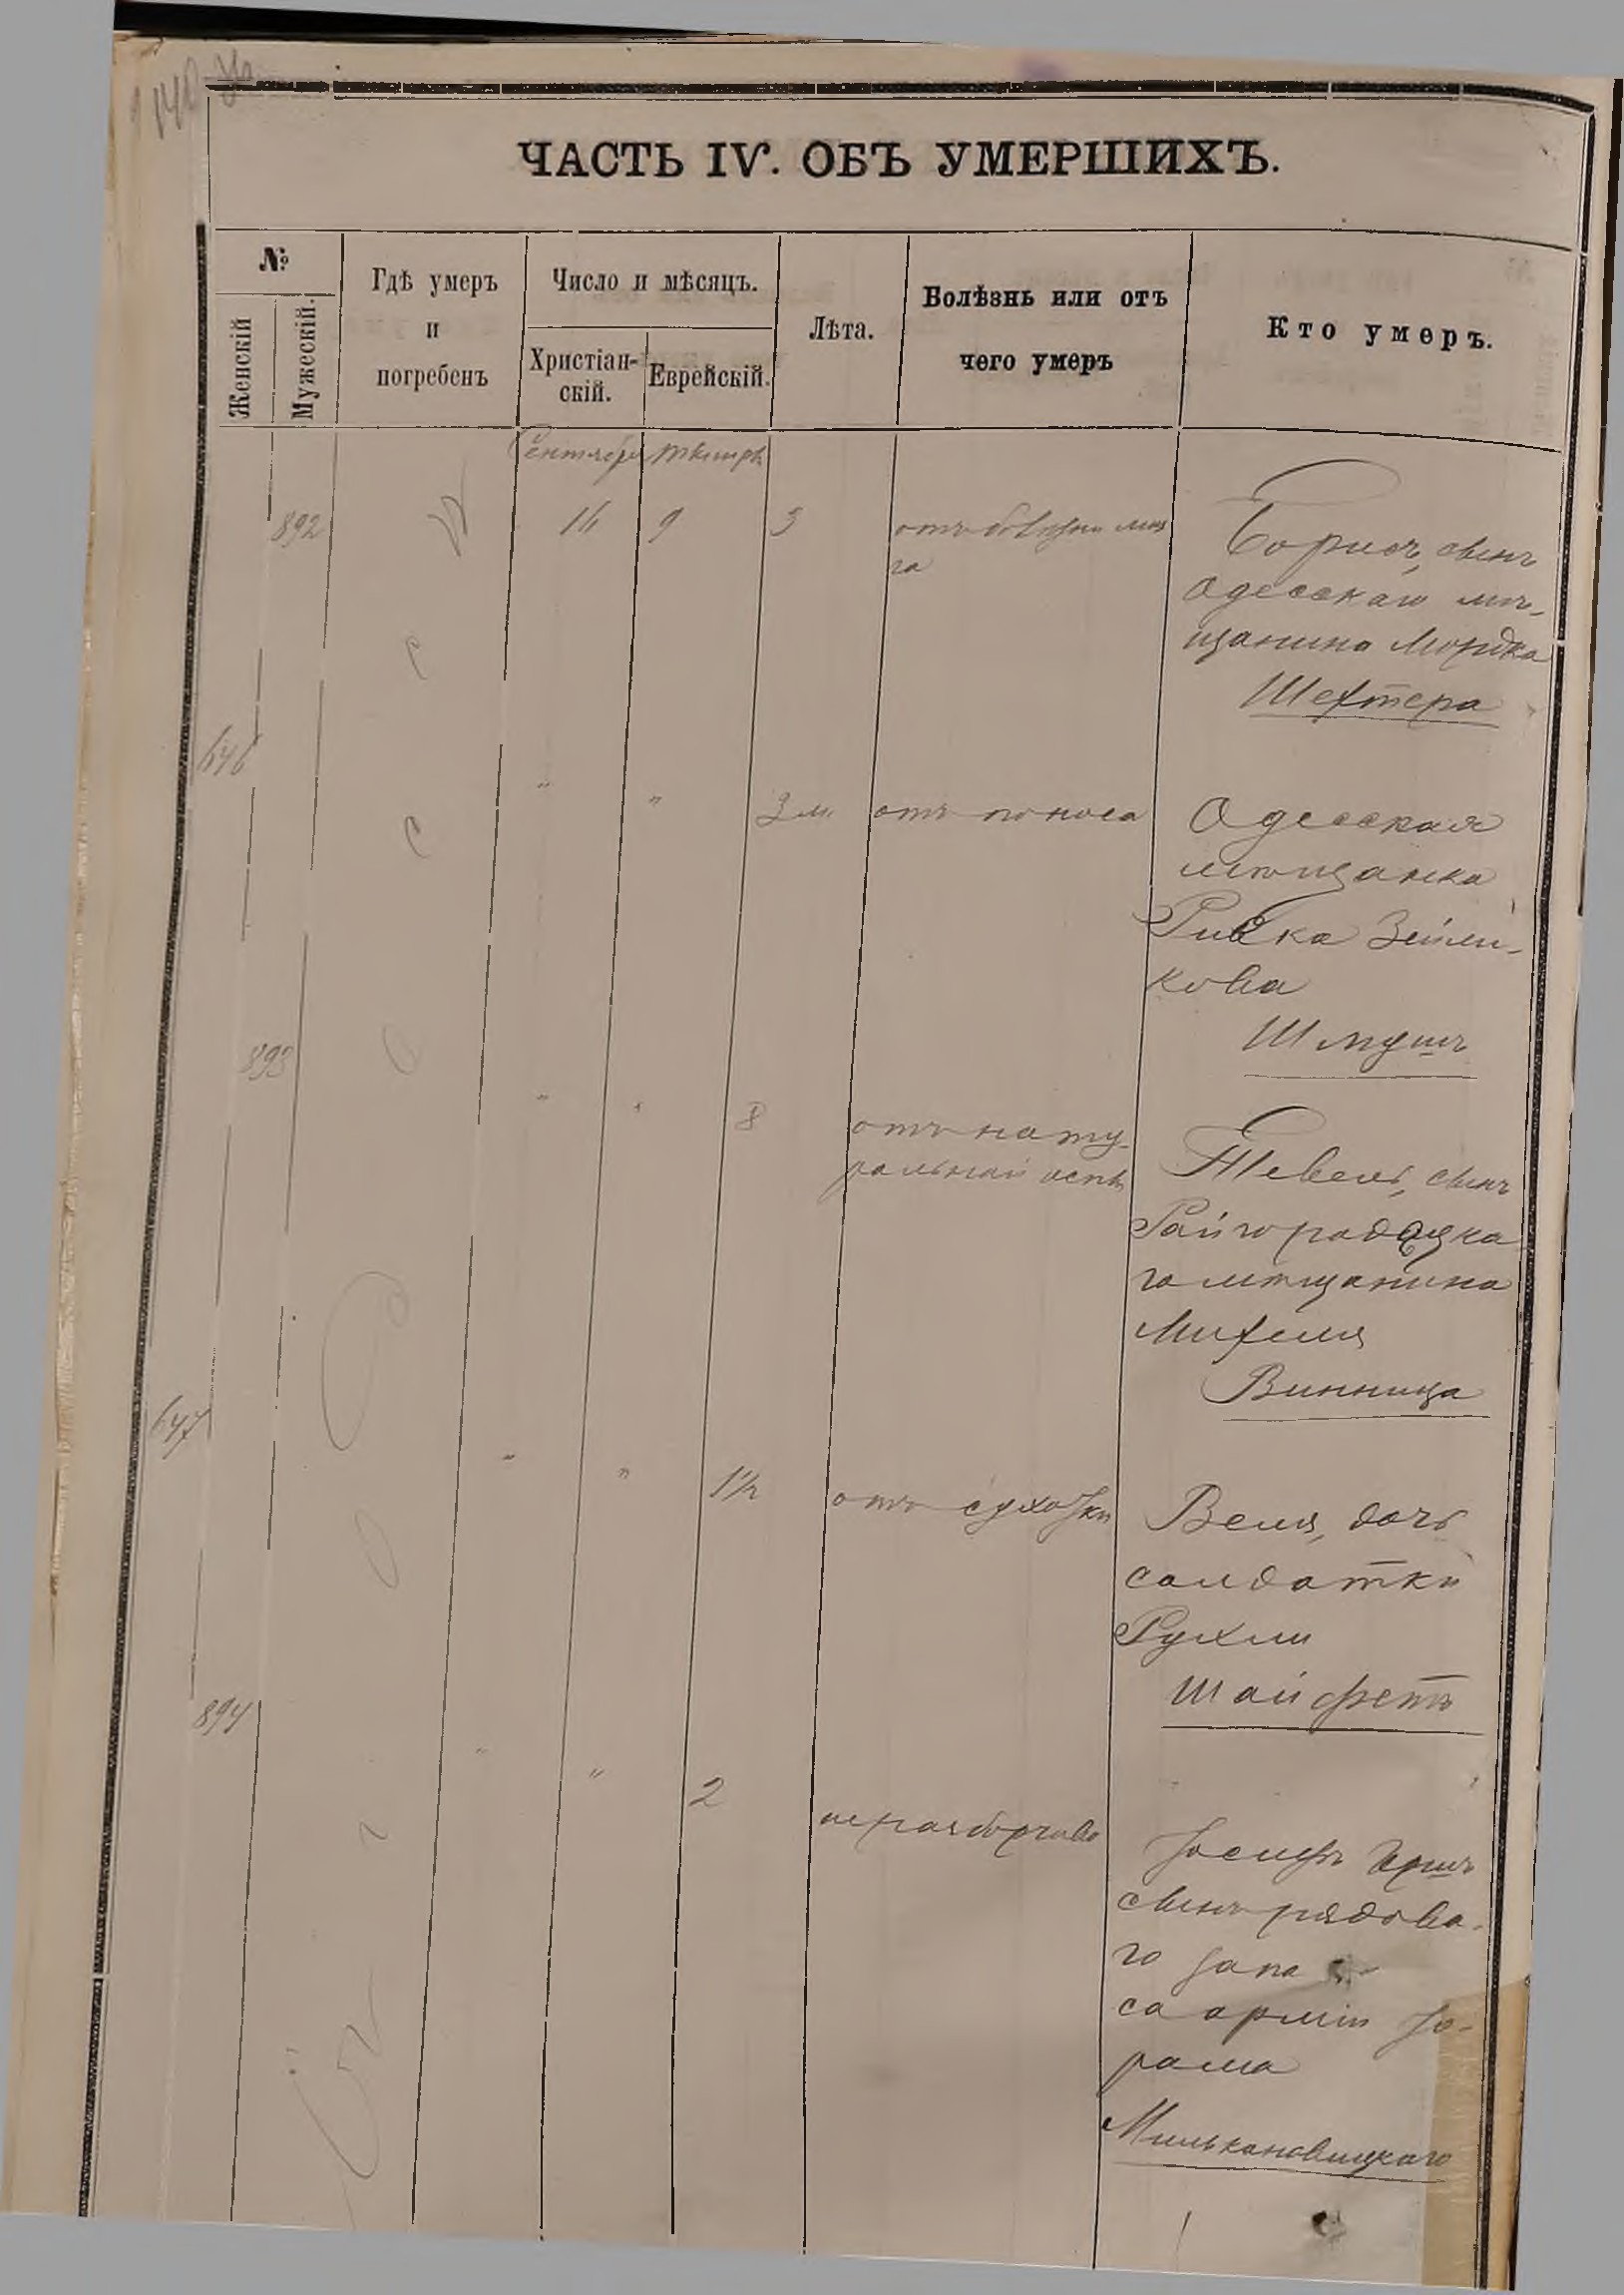 ЧАСТЬ IV. ОБЪ УМЕРШИХЪ.
№
Женскій
Мужескій.
Гдѣ умеръ
и
погребенъ
Число и мѣсяцъ.
Христіан-
скій.
Еврейскій.
Лѣта.
Болѣзнь или отъ
чего умеръ
Кто умеръ.
Сентября
892
9
3
отъ болѣзни моз
га
Борисъ, сынъ
Одесскаго мѣ-
щанина Мордка
Шехтера
646
" " 3 м.
отъ поноса
Одесская
мѣщанка
Ривка Зейли-
кова
Шмушъ
893
" " 8
отъ нату-
ральной оспы
Тевель, сынъ
Райгородоцка
го мѣщанина
Михеля
Винница
647
" " 1½
отъ сухотки
Веля, дочь
солдатки
Рухли
Шайфетъ
894
" " 2
неразборчиво
Іосифъ Иршъ
сынъ рядова-
го запа
са арміи Іо-
рама
Мильkановицкаго